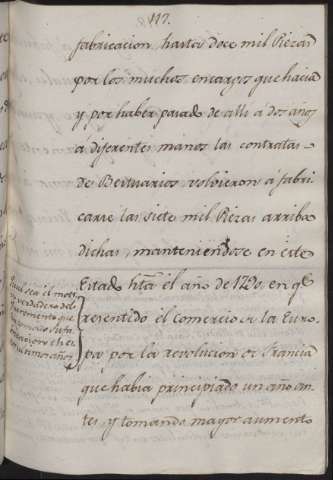 117.
fabricacion, hasta doce mil Piezas
por los muchos encargos que hacia
y por haber pasado de alli á dos años
á diferentes manos las contratas
de Bestuarios, volvieron á fabri
carse las siete mil Piezas arriba
dichas, manteniendose en este
Estado hta. el año de 1790, en qe.
resentido el comercio de la Euro-
pa por la revolucion de Francia
que habia principiado un año an
tes, y tomando mayor aumento
qual sea el motivo
verdadero del
aumento que